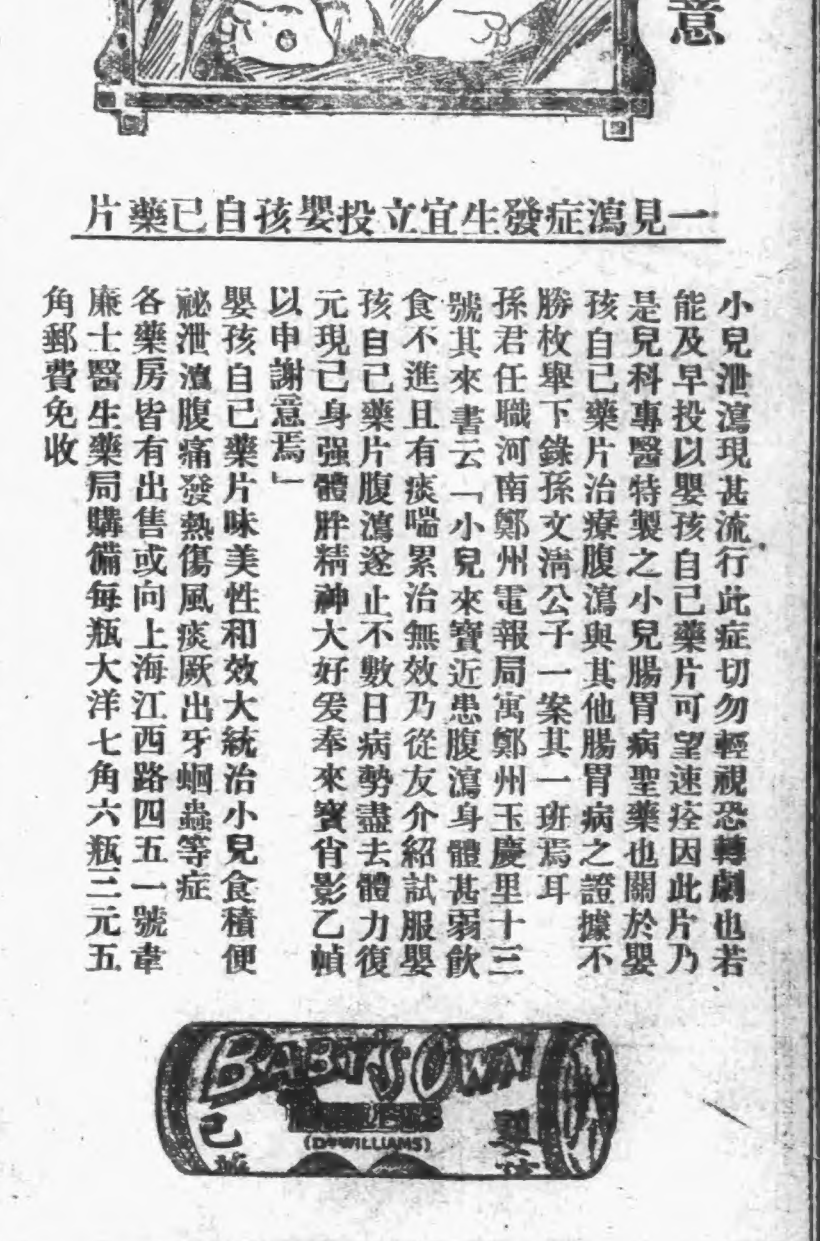 意
一見瀉症發生宜立投嬰孩自己藥片
小兒泄瀉現甚流行此症切勿輕視恐轉劇也若
能及早投以嬰孩自己藥片可望速痊因此片乃
是兒科專醫特製之小兒腸胃病聖藥也關於嬰
孩自己藥片治療腹瀉與其他腸胃病之證據不
勝枚舉下錄孫文淸公子一案其一班焉耳
孫君任職河南鄭州電報局寓鄭州玉慶里十三
號其來書云「小兒來寶近患腹瀉身體甚弱飮
食不進且有痰喘累治無效乃從友介紹試服嬰
孩自己藥片腹瀉遂止不數日病勢盡去體力復
元現已身强體胖精神大好爰奉來寶肖影乙幀
以申謝意焉」
嬰孩自己藥片味美性和效大統治小兒食積便
祕泄瀉腹痛發熱傷風痰厥出牙蛔蟲等症
各藥房皆有出售或向上海江西路四五一號韋
廉士醫生藥局購備每瓶大洋七角六瓶三元五
角郵費免收
BABY'S OWN
TABLETS
(DR WILLIAMS)
嬰孩
己藥